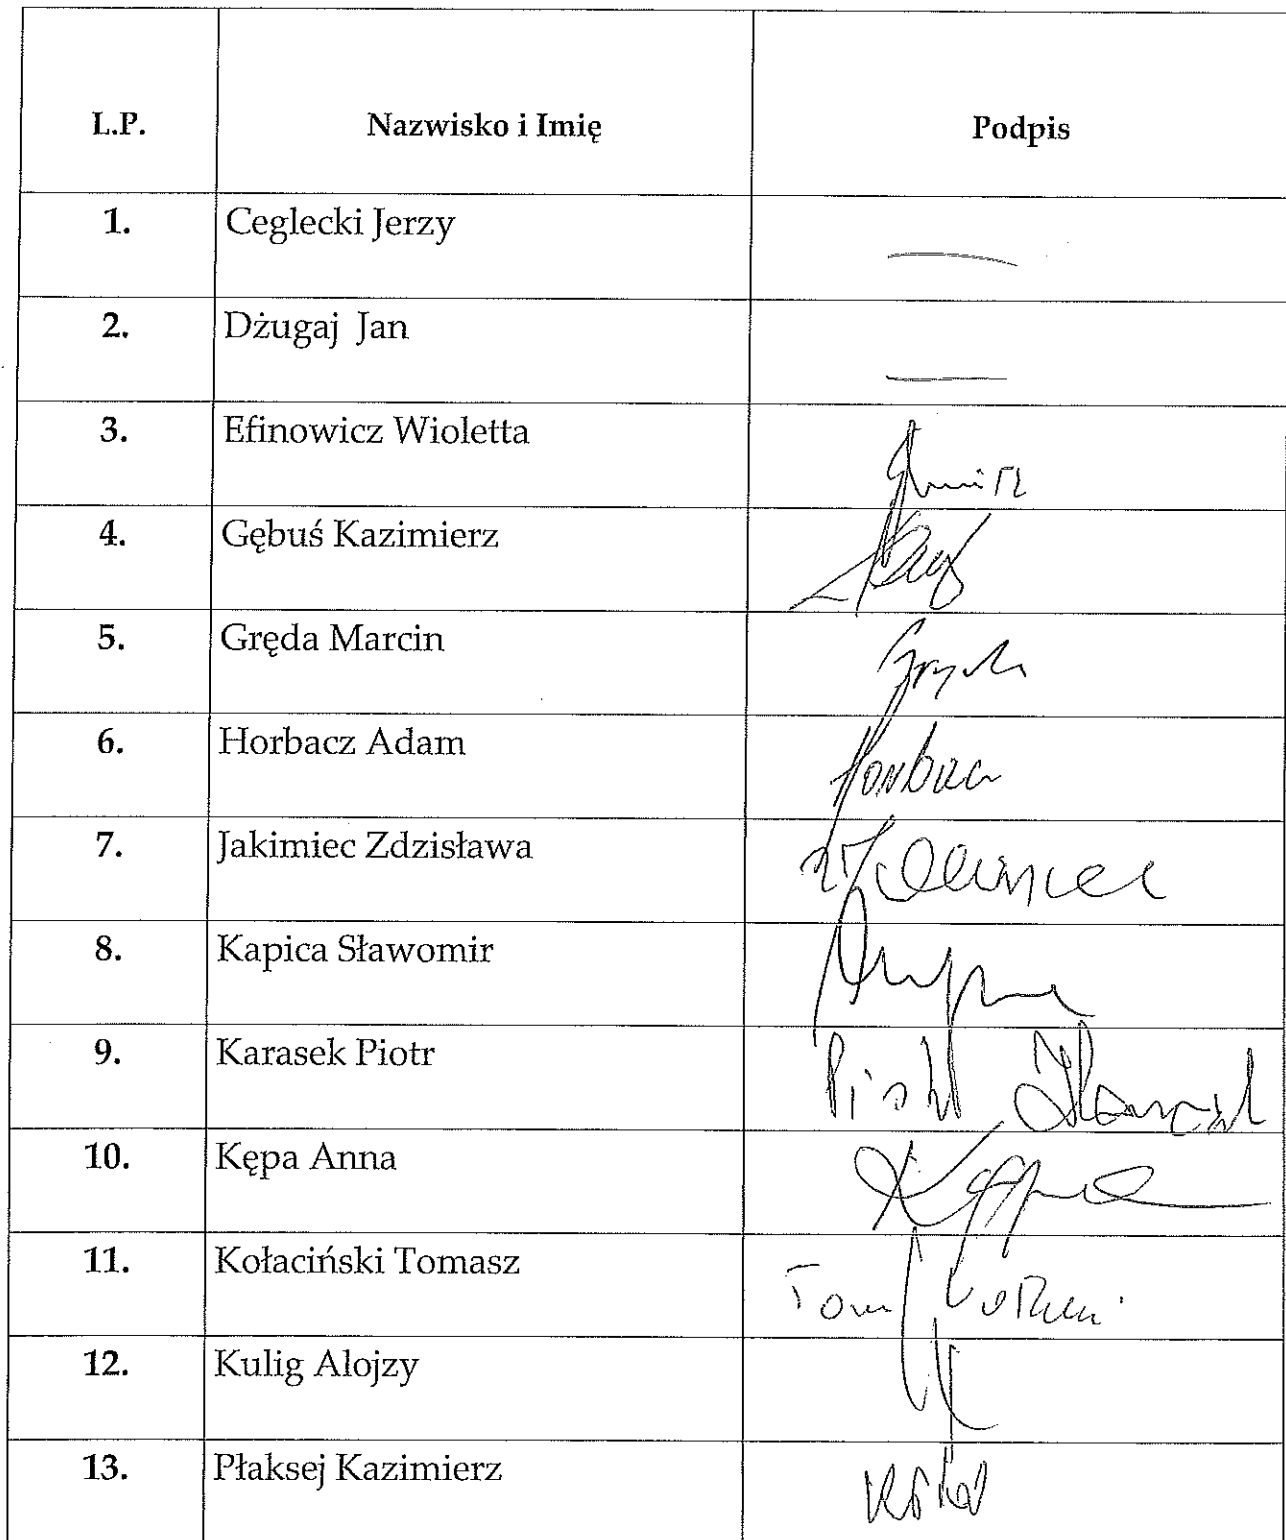 L.P. Nazwisko i Imię Podpis
1. Ceglecki Jerzy —
2. Dżugaj Jan —
3. Efinowicz Wioletta
4. Gębuś Kazimierz
5. Gręda Marcin
6. Horbacz Adam
7. Jakimiec Zdzisława
8. Kapica Sławomir
9. Karasek Piotr Piotr Karasek
10. Kępa Anna Kępa
11. Kołaciński Tomasz
12. Kulig Alojzy
13. Płaksej Kazimierz